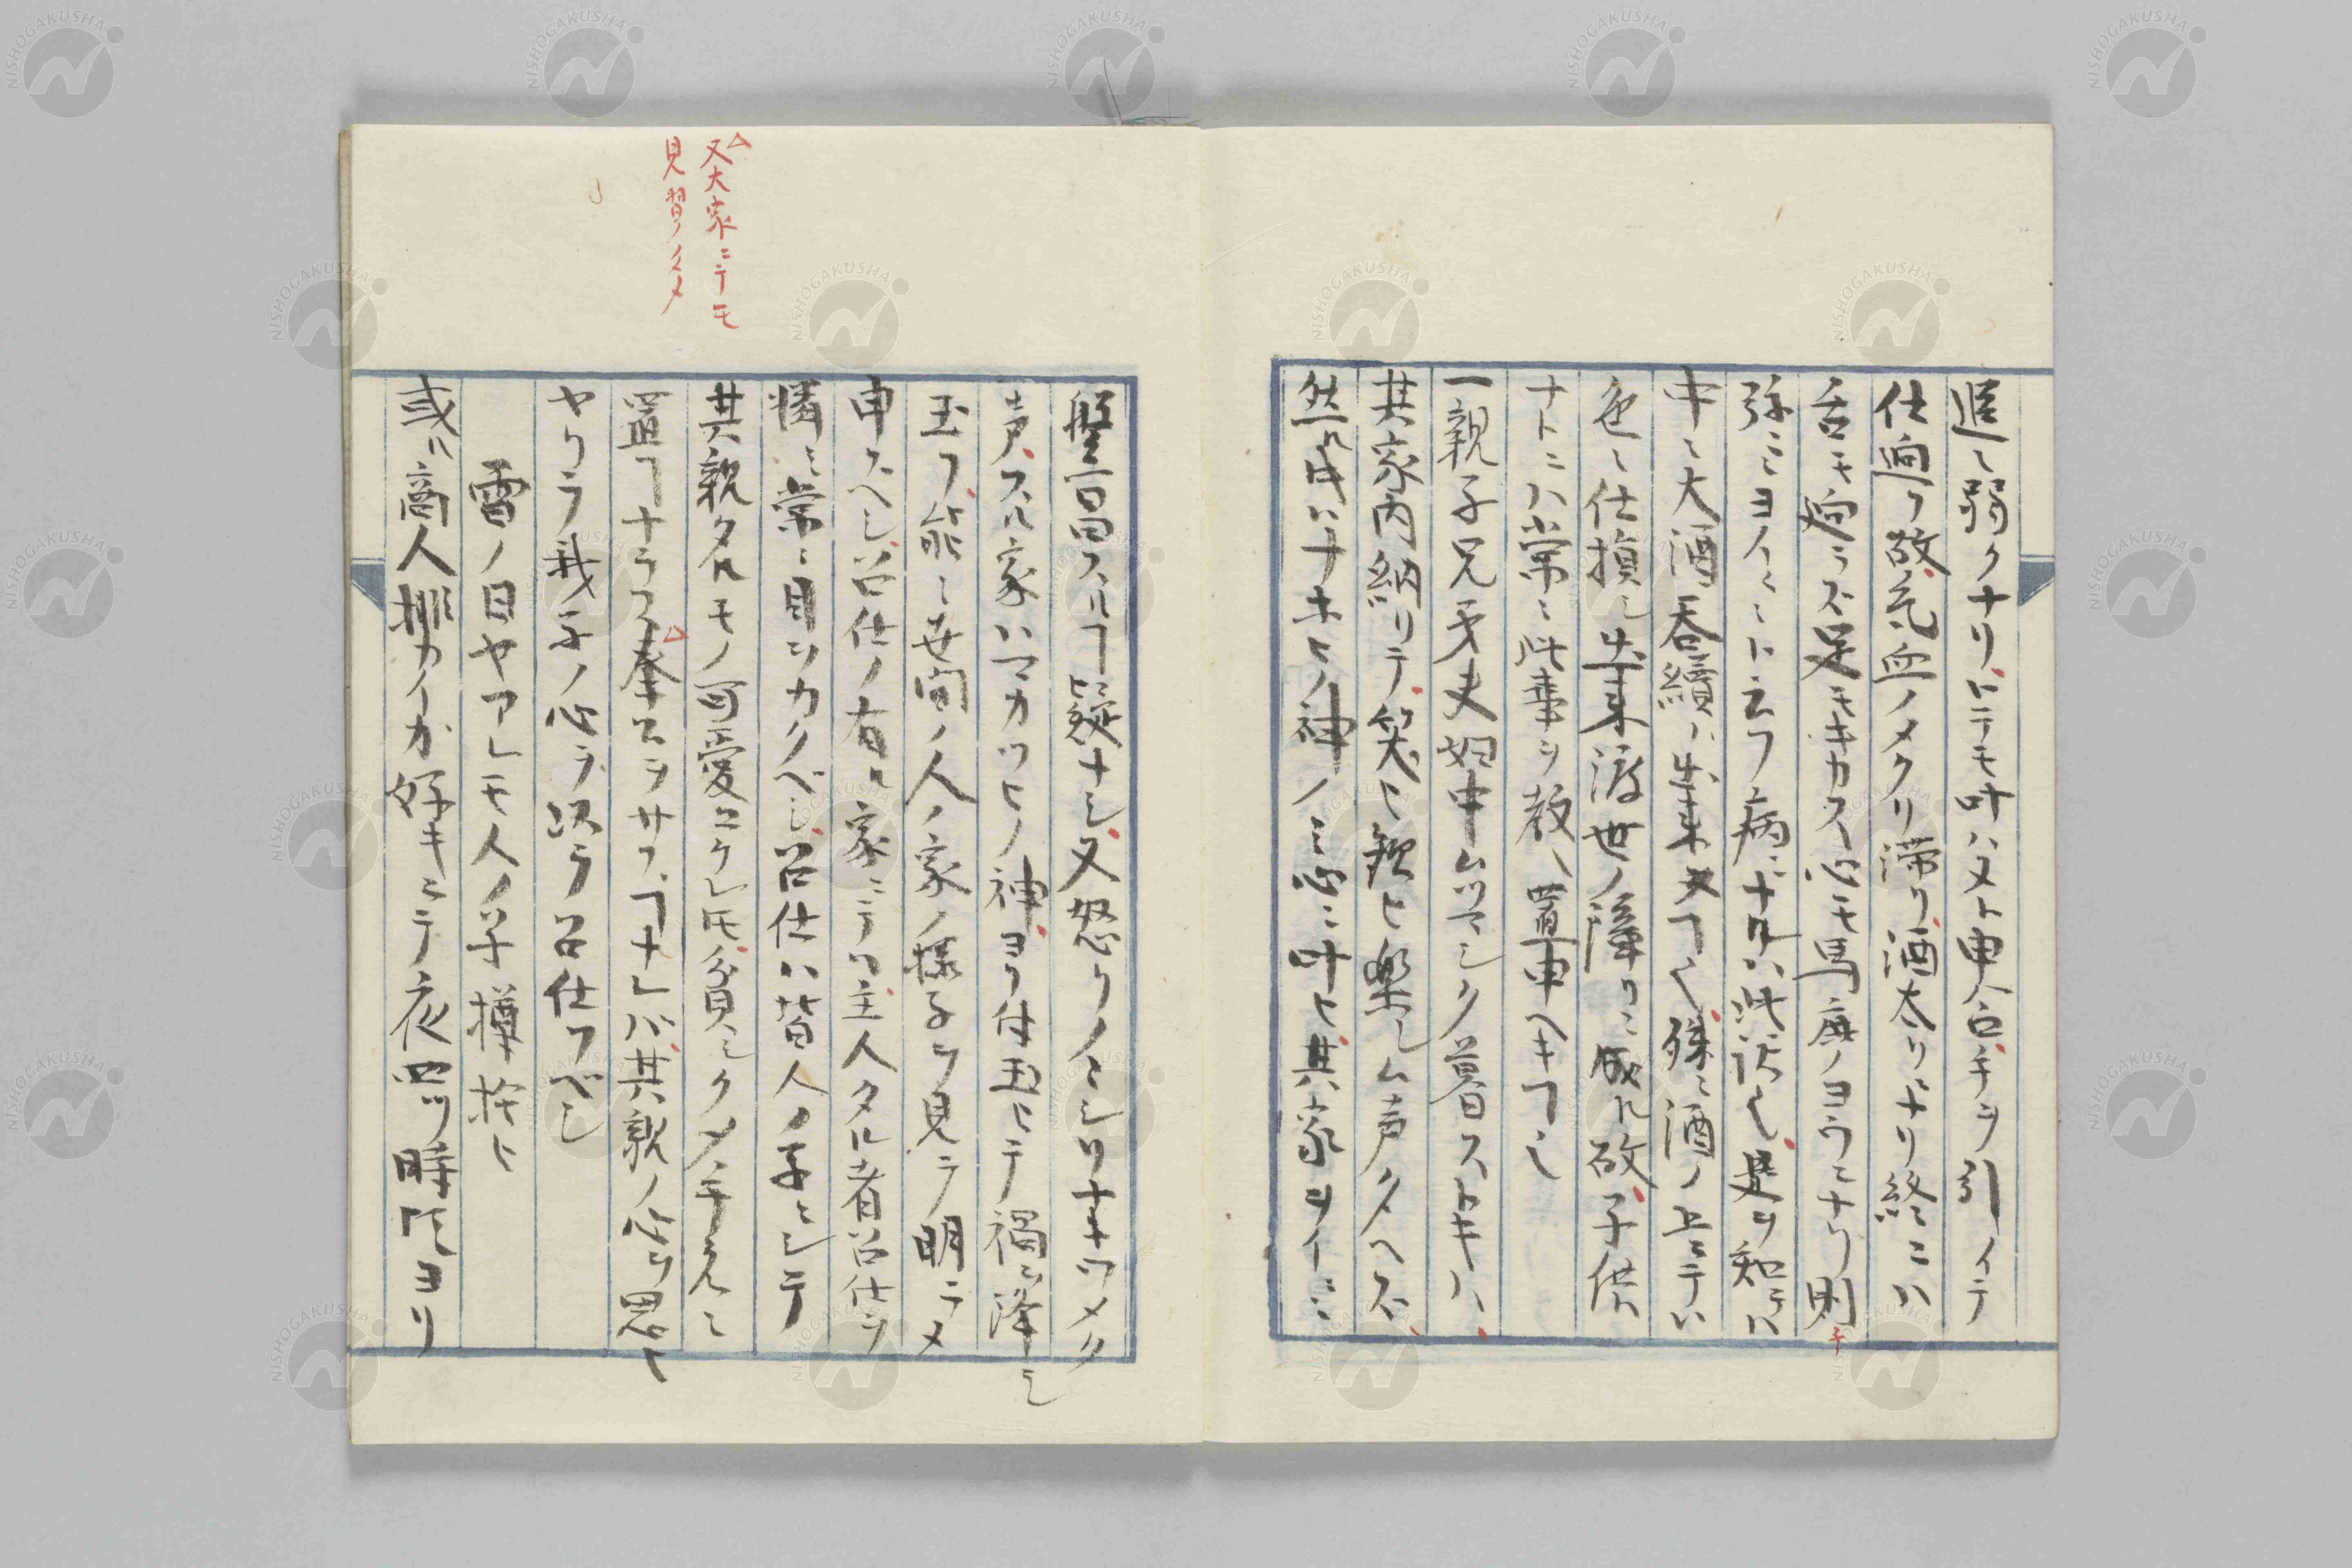 進ミ弱クナリニテモ叶ハヌト申合手ヲ引イテ
仕廻フ故気血ノメクリ滞リ酒太リナリ終ニハ
舌モ廻ラス足モキカス心モ馬鹿ノヨウニナリ則チ
弥ミヨイ〳〵ト云フ病ニナル
中ミ大酒呑續ハ出来ヌフ也殊ニ酒ノ上ニテハ
色ミ仕損シ出来渡世ノ障リニ成ル故子供
ナトニハ常ニ此事ヲ教ヘ置申ヘキフ也
一親子兄弟夫婦中ムツマシク暮ストキハ
其家内納リテ笑ヒ歓ヒ楽シム声タヘス
然ルトキハナホヒノ神ノミ心ニ叶ヒ其家サイニ
繁昌スルフ疑ナシ又怒リノヽシリナキワメク
声スル家ハマカツヒノ神ヨリ仕玉ヒテ禍ミ降シ
玉フ能ミ世間ノ人ノ家ノ様子ヲ見テ明ラメ
申スヘシ召仕ノ有ル家ニテハ主人タル者召仕ヲ
憐ミ常ミ目ヲカクベシ召仕ハ皆人ノ子ニシテ
其親タルモノ可愛ユケレ𪜈貧シクメ手元ニ
置フナラス奉公ヲサスフナレハ其親ノ心ヲ思ヒ
ヤリテ我子ノ心ヲ以テ召仕フベシ
雪ノ日ヤアレモ人ノ子樽拾ヒ
或ハ商人挊カノカ好キニテ夜四ツ時限ヨリ
△又大家ニテモ
見習ノタメ
NISHOGAKUSHA